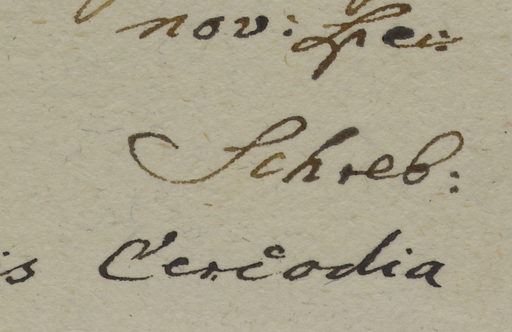 nov: spe:
Schreb:
is Cercodia